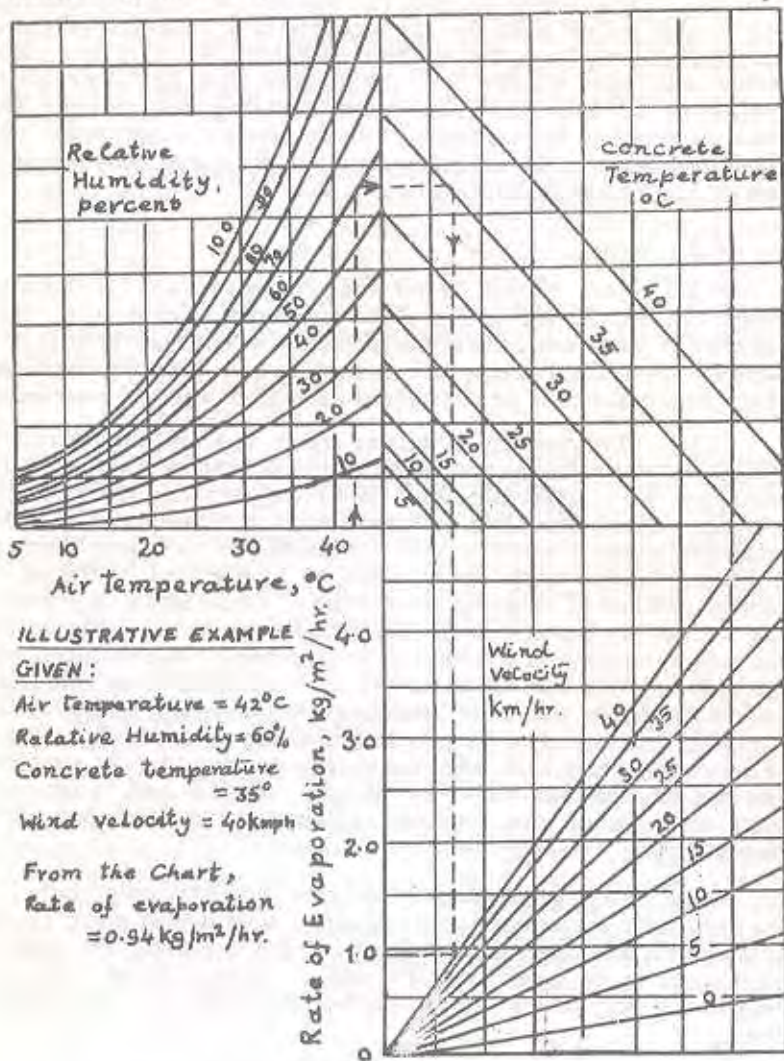 Relative
Humidity,
percent
Concrete
Temperature
°C
100
90
80
70
60
50
40
30
20
10
40
35
30
25
20
15
10
5
5 10 20 30 40
Air temperature, °C
ILLUSTRATIVE EXAMPLE
GIVEN:
Air temperature = 42°C
Relative Humidity = 60%
Concrete temperature
= 35°
Wind velocity = 40kmph
From the Chart,
Rate of evaporation
= 0.94 kg/m²/hr.
Rate of Evaporation, kg/m²/hr.
4.0
3.0
2.0
1.0
0
Wind
Velocity
km/hr.
40
35
30
25
20
15
10
5
0